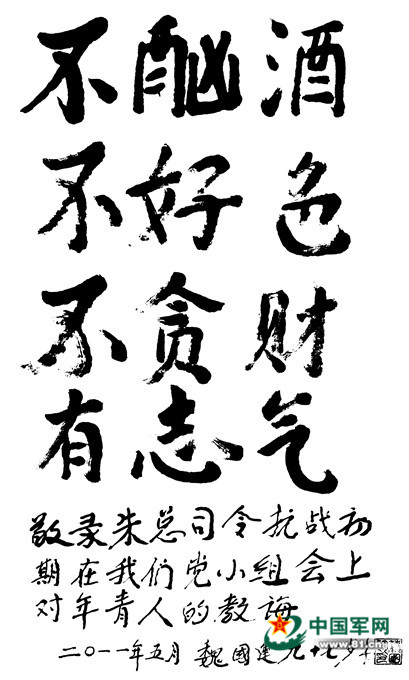 不酗酒
不好色
不贪财
有志气
敬录朱总司令抗战初
期在我们党小组会上
对年青人的教诲
二〇一一年五月 魏國運九十
中国军网
www.81.cn